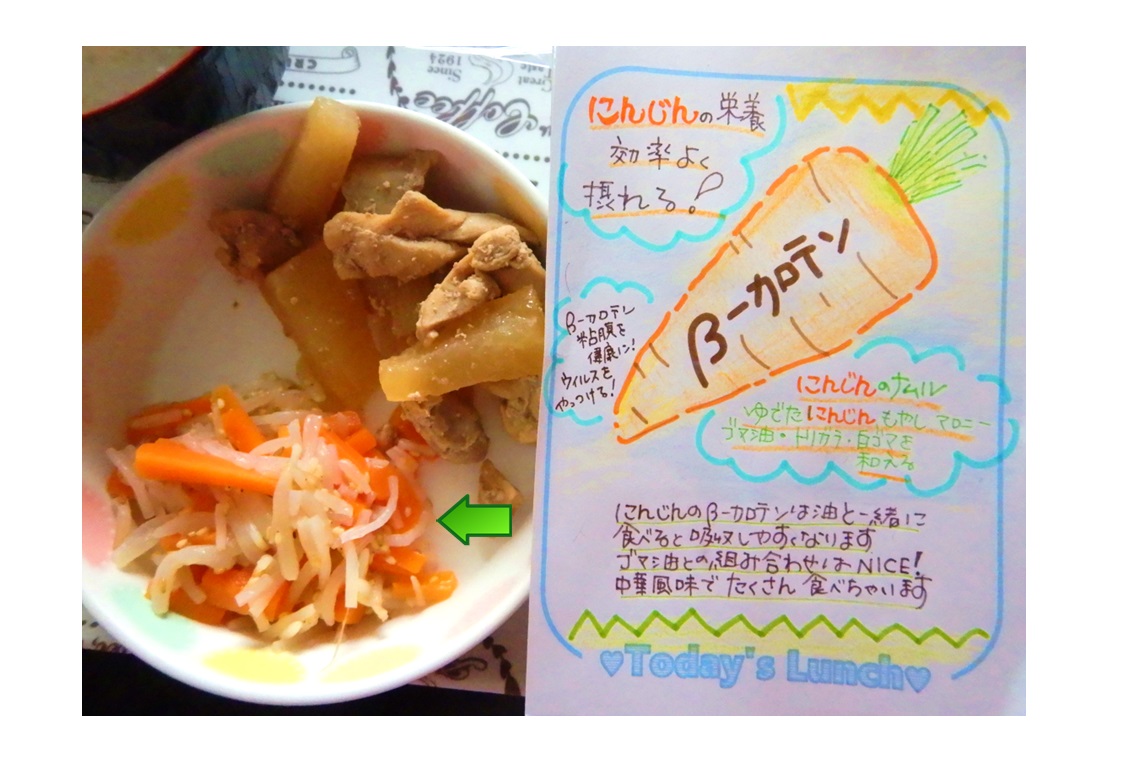 CR
Since
1924
Great
Taste
Coffee
にんじんの栄養
効率よく
摂れる!
β-カロテン
β-カロテン
粘膜を
健康に!
ウィルスを
やっつける!
にんじんのナムル
ゆでたにんじん もやし マロニー
ゴマ油・トリガラ・白ゴマを
和える
にんじんのβ-カロテンは油と一緒に
食べると吸収しやすくなります
ゴマ油との組み合わせはNICE!
中華風味でたくさん食べちゃいます
♥Today's Lunch♥